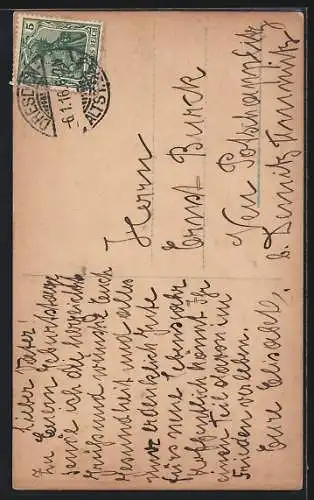 DRESDEN
-6.1.16
ALTST.
5
Herrn
Ernst Burck
Neu Potschappel
b. Kemnitz
Lieber Vater!
Zu Deinem Geburtstage
sende ich die herzlichsten
Grüße und wünsche Euch
Gesundheit und alles
nur erdenklich Gute
fürs neue Lebensjahr
Hoffentlich könnt Ihr
einen Teil davon in
Frieden verleben.
Eure Elisabeth.